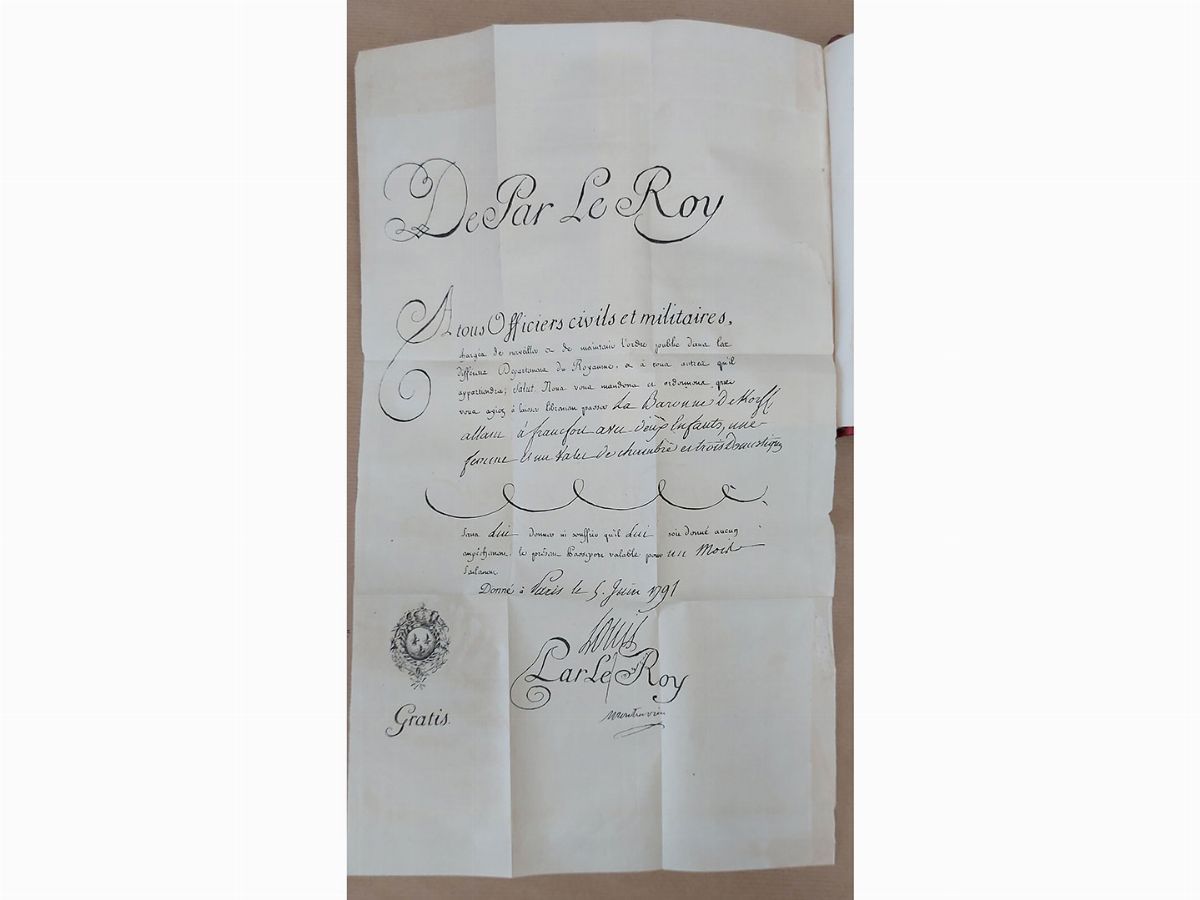 De Par Le Roy
A tous Officiers civils et militaires,
chargés de surveiller et de maintenir l'ordre public dans les
différens Départemens du Royaume, et à tous autres qu'il
appartiendra; Salut. Nous vous mandons et ordonnons, que
vous ayiez à laisser librement passer La Baronne De Korff
allant à francfort avec deux Enfants, une
femme et un valet de chambre et trois Domestiques
sans lui donner ni souffrir qu'il lui soit donné aucun
empêchement, le présent Passeport valable pour un Mois
seulement
Donné à Paris le 5. Juin 1791
Louis
Par Le Roy
Montmorin
Gratis.